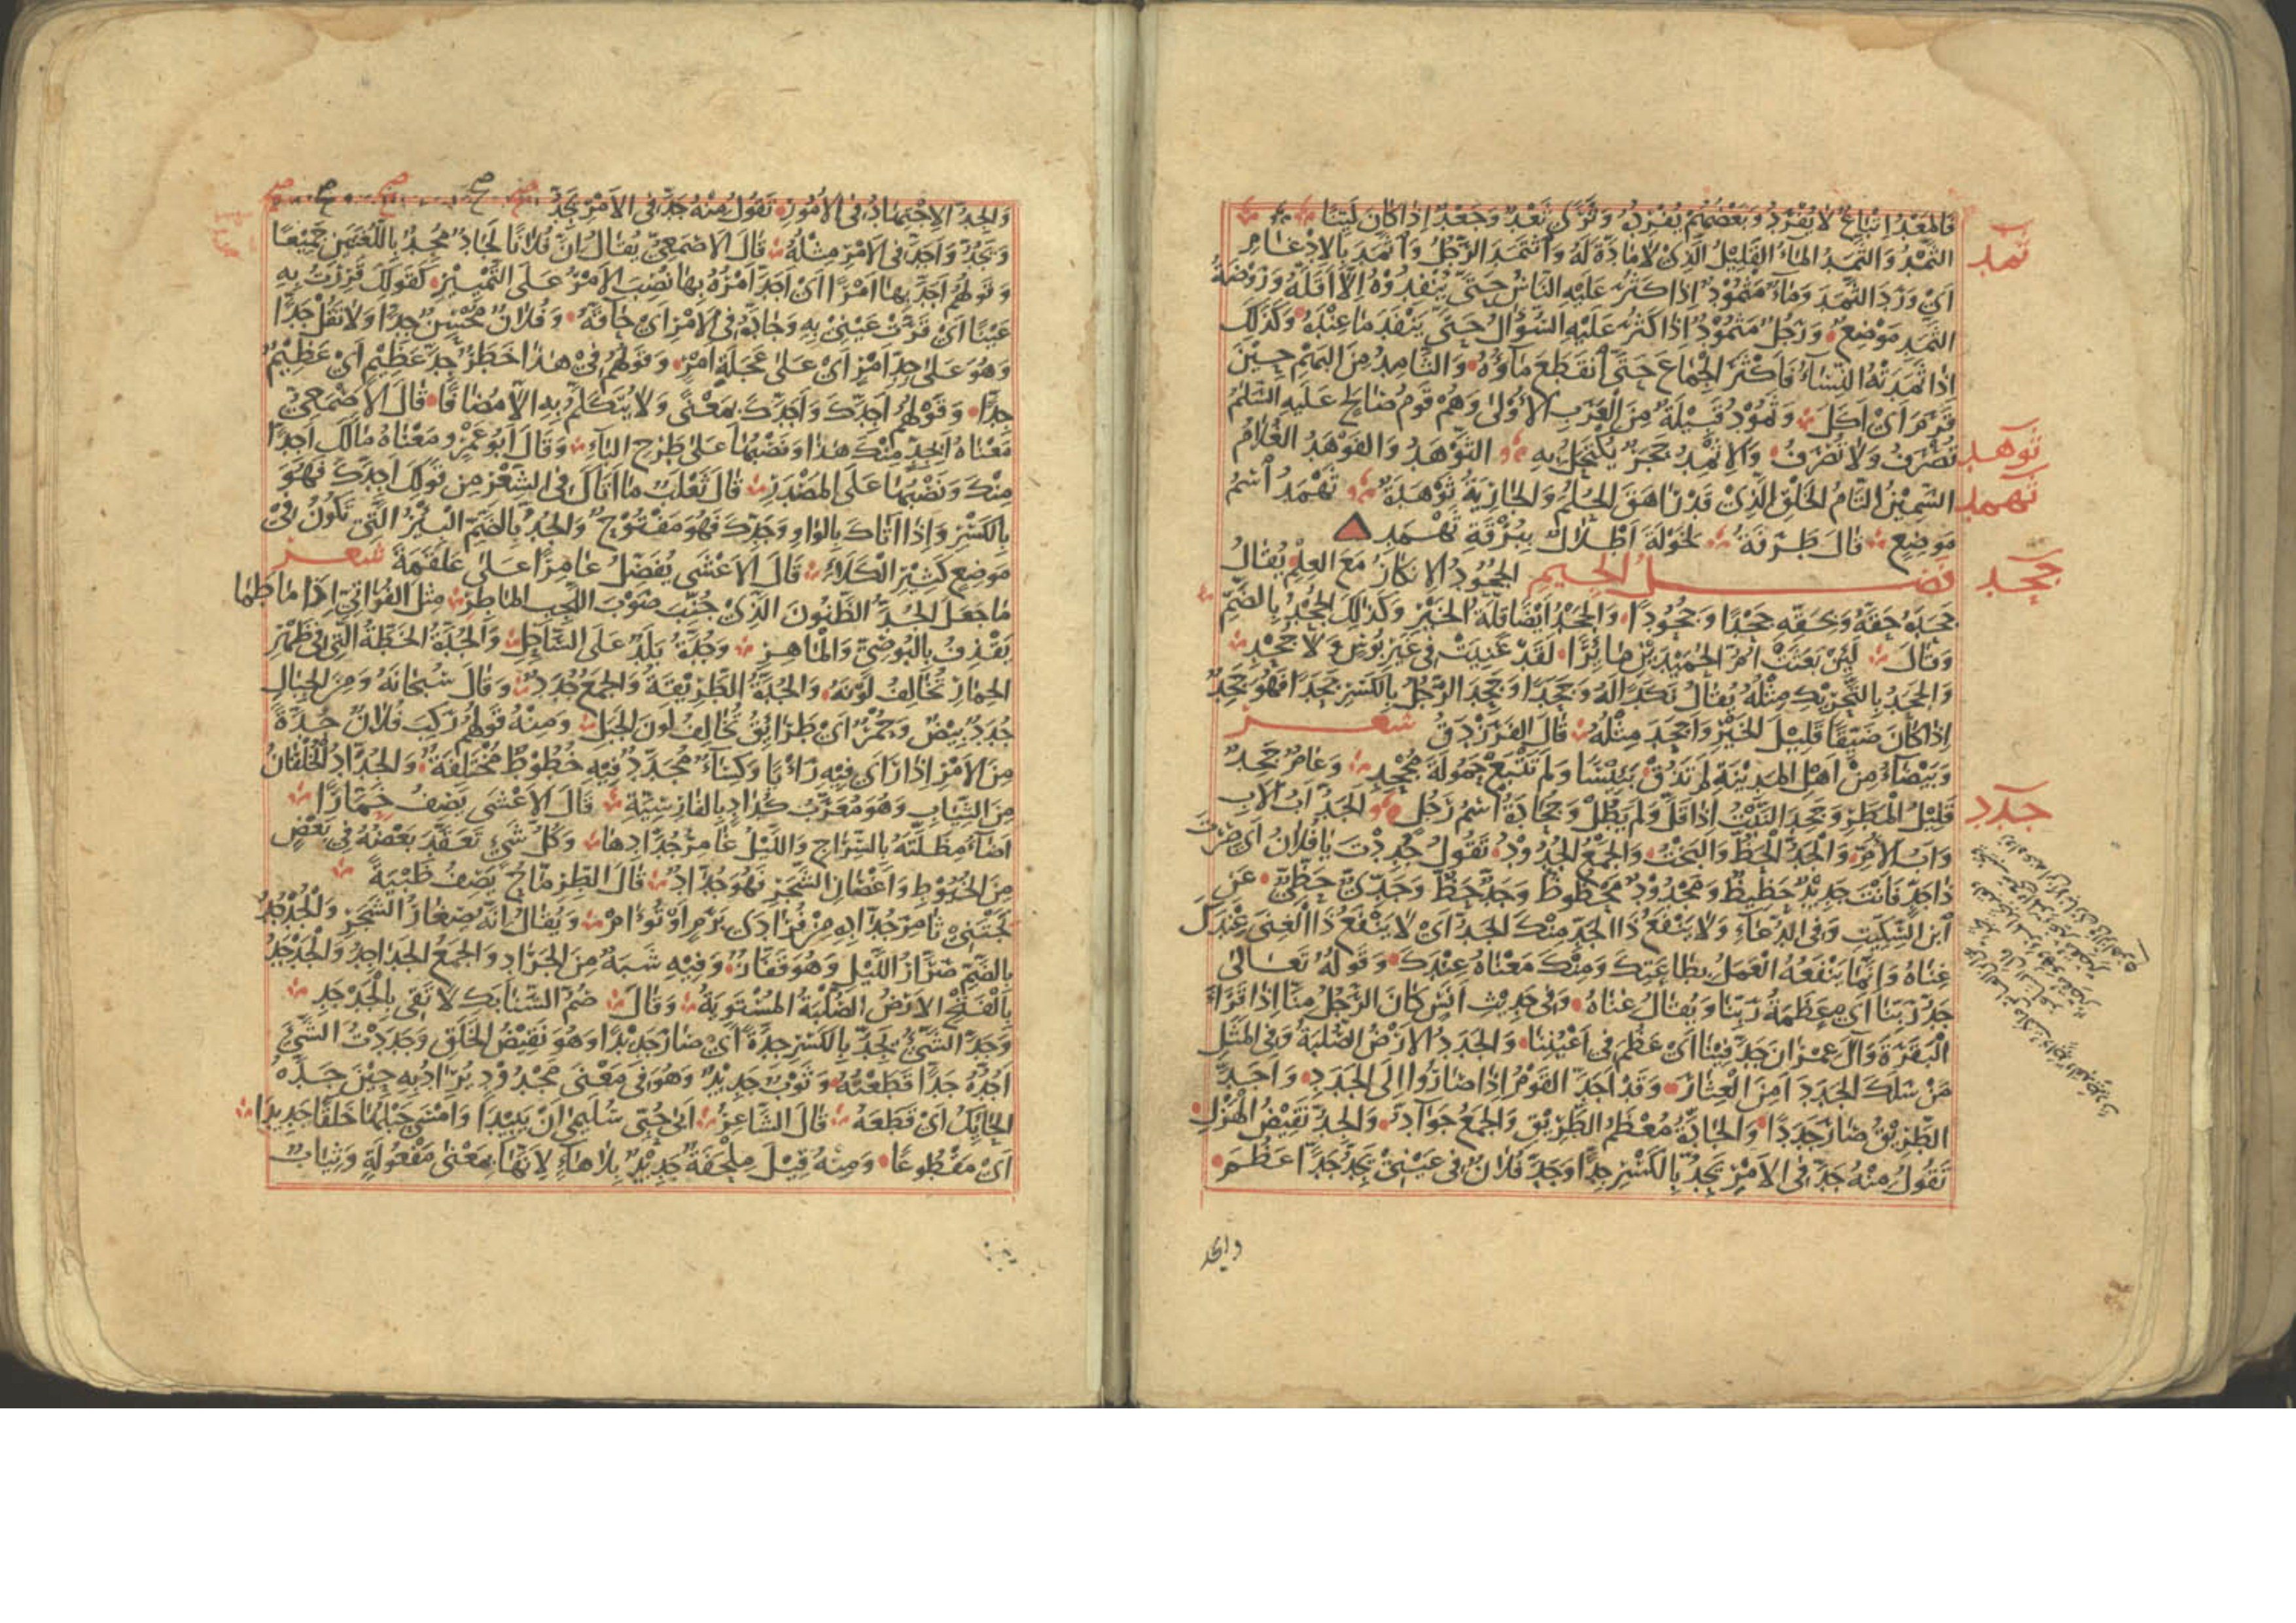 فالمعد اتباع لا يفرد وبعضهم يفرده وثرى ثعد وجعد اذا كان لينا
ثمد
الثمد والثمد الماء القليل الذى لا مادة له واثتمد الرجل واثمد بالادغام
اى ورد الثمد وماء مثمود اذا كثر عليه الناس حتى ينفدوه الا اقله وروضة
الثمد موضع ورجل مثمود اذا كثر عليه السؤال حتى ينفد ما عنده وكذلك
اذا ثمدته النساء فاكثر الجماع حتى انقطع ماؤه والثامد من البهم حين
قرم اى اكل وثمود قبيلة من العرب الاولى وهم قوم صالح عليه السلام
ثوهد
تصرف ولا تصرف والاثمد حجر يكتحل به الثوهد والفوهد الغلام
ثهمد
السمين التام الخلق الذى قد راهق الحلم والجارية ثوهدة ثهمد اسم
موضع قال طرفة لخولة اطلال ببرقة ثهمد
جحد
فصل الجيم الجحود الانكار مع العلم يقال
جحده حقه وبحقه جحدا وجحودا والجحد ايضا قلة الخير وكذلك الجحد بالضم
وقال لئن بعثت ام الحميدين مائرا لقد غنيت فى غير بوس ولا جحد
والجحد بالتحريك مثله يقال نكدا له وجحدا وجحد الرجل بالكسر جحدا فهو جحد
اذا كان ضيقا قليل الخير واجحد مثله قال الفرزدق شعر
وبيضاء من اهل المدينة لم تذق بئيسا ولم تتبع حمولة مجحد وعام جحد
جدد
قليل المطر وجحد النبت اذا قل ولم يطل وجحادة اسم رجل الجد اب الاب
واب الام والجد الحظ والبخت والجمع الجدود تقول جددت يا فلان اى صرت
ذا جد فانت جديد حظيظ ومجدود محظوظ وجد حظ وجدى حظى عن
ابن السكيت وفى الدعاء ولا ينفع ذا الجد منك الجد اى لا ينفع ذا الغنى عندك
غناه وانما ينفعه العمل بطاعتك ومنك معناه عندك وقوله تعالى
جد ربنا اى عظمة ربنا ويقال غناه وفى حديث انس كان الرجل منا اذا قرأ
البقرة وآل عمران جد فينا اى عظم فى اعيننا والجدد الارض الصلبة وفى المثل
من سلك الجدد امن العثار وقد اجد القوم اذا صاروا الى الجدد واجد
الطريق صار جددا والجادة معظم الطريق والجمع جواد والجد نقيض الهزل
تقول منه جد فى الامر يجد بالكسر جدا وجد فلان فى عينى يجد جدا عظم
والجد
والجد الاجتهاد فى الامور تقول منه جد فى الامر يجد
ويجد واجد فى الامر مثله قال الاصمعى يقال ان فلانا لجاد مجد باللغتين جميعا
وقولهم اجد بها امرا اى اجد امره بها نصب الامر على التمييز كقولك قررت به
عينا اى قرت عينى به وجاده فى الامر اى حاقه وفلان محسن جدا ولا تقل جدا
وهو على جد امر اى على عجلة امر وقولهم فى هذا خطر جد عظيم اى عظيم
جدا وقولهم اجدك واجدك بمعنى ولا يتكلم به الا مضافا قال الاصمعى
معناه ابجد منك هذا ونصبهما على طرح الباء وقال ابو عمرو معناه مالك اجدا
منك ونصبهما على المصدر قال ثعلب ما اتاك فى الشعر من قولك اجدك فهو
بالكسر واذا اتاك بالواو وجدك فهو مفتوح والجد بالضم البئر التى تكون فى
موضع كثير الكلاء قال الاعشى يفضل عامرا على علقمة شعر
ما جعل الجد الظنون الذى جنب صوب اللجب الماطر مثل الفراتى اذا ما طما
يقذف بالبوصى والماهر وجدة بلد على الساحل والجدة الخطة التى فى ظهر
الحمار تخالف لونه والجدة الطريقة والجمع جدد وقال سبحانه ومن الجبال
جدد بيض وحمر اى طرائق تخالف لون الجبل ومنه قولهم ركب فلان جدة
من الامر اذا راى فيه رايا وكساء مجدد فيه خطوط مختلفة والجداد الخلقان
من الثياب وهو معرب كداد بالفارسية قال الاعشى يصف خمارا
اضاء مظلته بالسراج والليل غامر جدادها وكل شىء تعقد بعضه فى بعض
من الخيوط واغصان الشجر فهو جداد قال الطرماح يصف ظبية
تجتنى ثامر جداده من فرادى برم او تؤام ويقال انه صغار الشجر والجدجد
بالضم صرار الليل وهو قفاز وفيه شبه من الجراد والجمع الجداجد والجدجد
بالفتح الارض الصلبة المستوية وقال ضم السنابك لا تقى بالجدجد
وجد الشىء يجد بالكسر جدة اى صار جديدا وهو نقيض الخلق وجددت الشىء
اجده جدا قطعته وثوب جديد وهو فى معنى مجدود يراد به حين جده
الحائك اى قطعه قال الشاعر ابى حبى سليمى ان يبيدا وامسى حبلها خلقا جديدا
اى مقطوعا ومنه قيل ملحفة جديد بلا هاء لانها بمعنى مفعولة وثياب